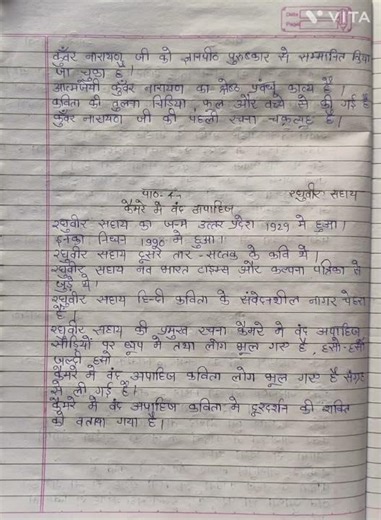 VITA
Date
Page
कुँवर नारायण जी को ज्ञानपीठ पुरुस्कार से सम्मानित किया
जा चुका है।
आत्मजयी कुँवर नारायण का श्रेष्ठ प्रबंध काव्य है।
कविता की तुलना चिड़िया, फूल और बच्चे से की गई है
कुँवर नारायण जी की पहली रचना चक्रव्यूह है।
पाठ-4
रघुवीर सहाय
कैमरे में बंद अपाहिज
रघुवीर सहाय का जन्म उत्तर प्रदेश 1929 में हुआ।
इनका निधन 1990 में हुआ।
रघुवीर सहाय दूसरे तार-सप्तक के कवि थे।
रघुवीर सहाय नव भारत टाइम्स और कल्पना पत्रिका से
जुड़े थे।
रघुवीर सहाय हिन्दी कविता के संवेदनशील नागर चेहरा
है
रघुवीर सहाय की प्रमुख रचना कैमरे में बंद अपाहिज
सीढ़ियों पर धूप में तथा लोग भूल गए है, हसो-हसो
जल्दी हसो
कैमरे में बंद अपाहिज कविता लोग भूल गए है संग्रह
से ली गई है।
कैमरे में बंद अपाहिज कविता में दूरदर्शन की शक्ति
को बताया गया है।